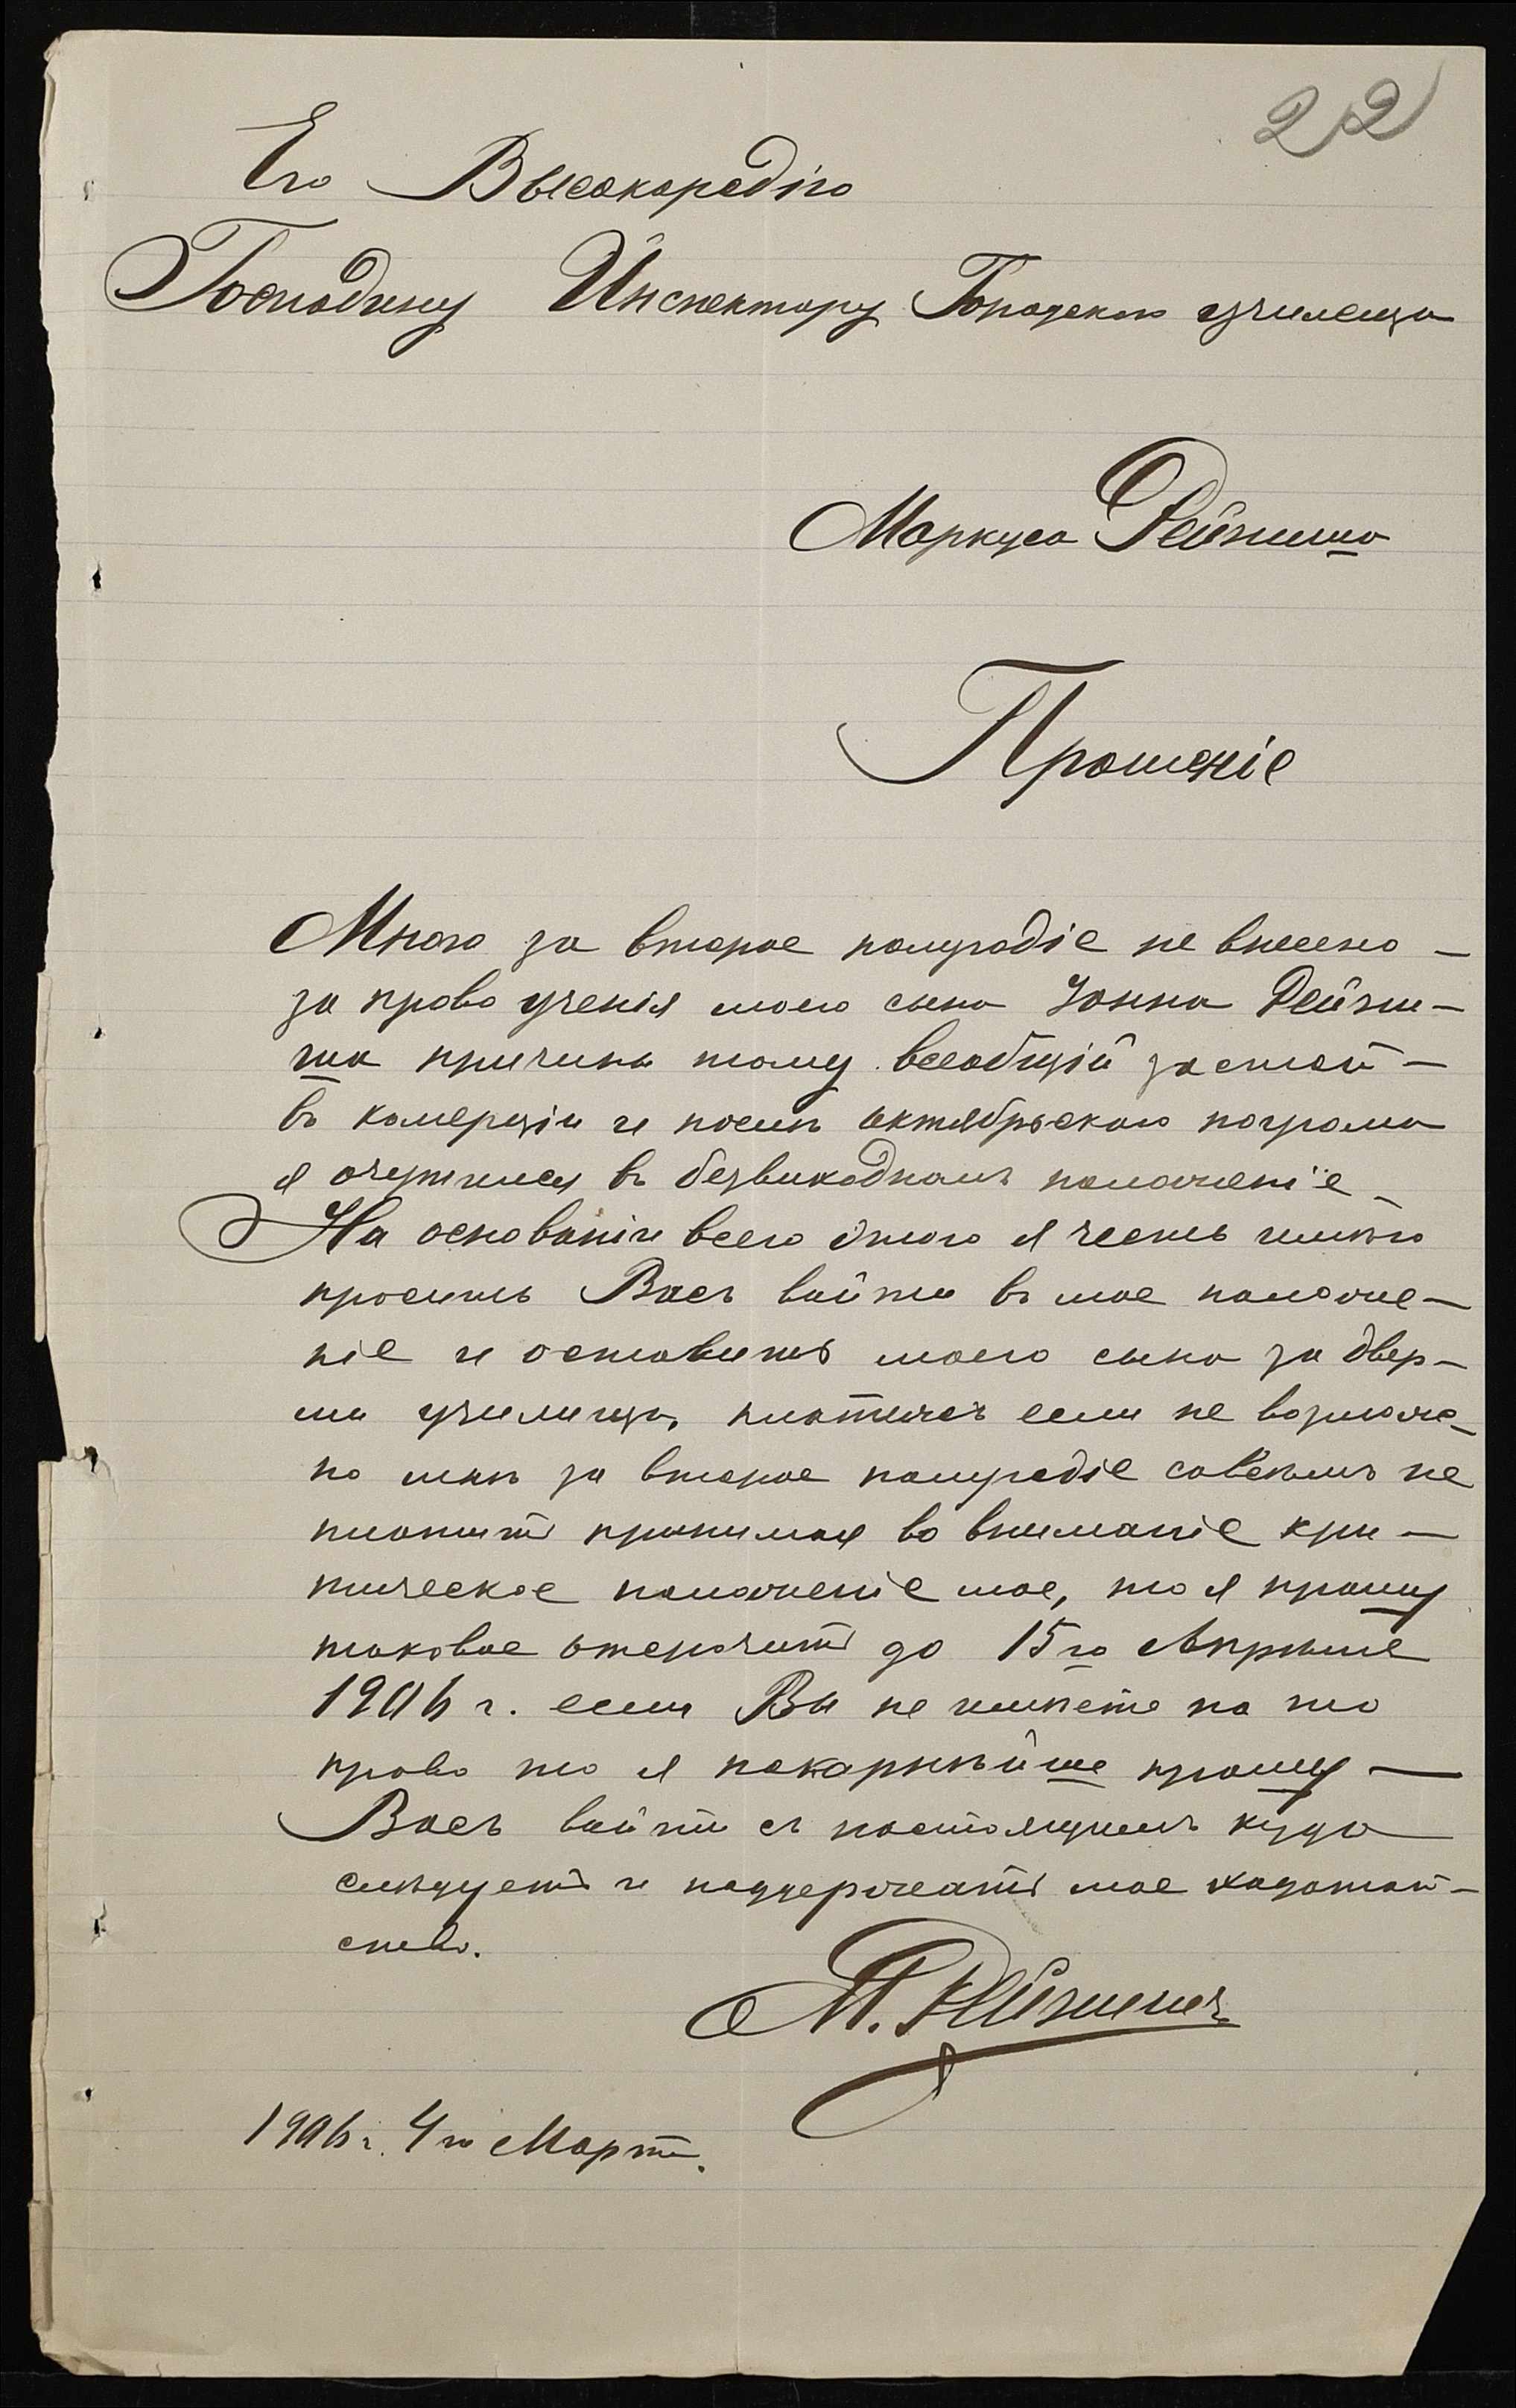 22
Его Высокородію
Господину Инспектору Городского училища
Маркуса Рейзиша
Прошеніе
Мною за второе полугодіе не внесено —
за право ученія моего сына Іонна Рейзи—
ша причина тому всеобщій застой —
въ комерціи и послѣ октябрьскаго погрома
я очутился въ безвиходномъ положеніе
На основаніи всего этого я честь имѣю
просить Васъ войти въ мое положе—
ніе и оставить моего сына за двер—
ми училища, платежъ если не возмож—
но мнѣ за второе полугодіе совсѣмъ не
платить принимая во вниманіе кри—
тическое положеніе мое, то я прошу
таковое отсрочить до 15го Апрѣле
1906 г. если Вы не имѣете на то
право то я покорнѣйше прошу —
Васъ войти съ настоящимъ куда
слѣдуетъ и поддержать мое ходотай—
ство.
М. Рейзишъ
1906 г. 4го Март.